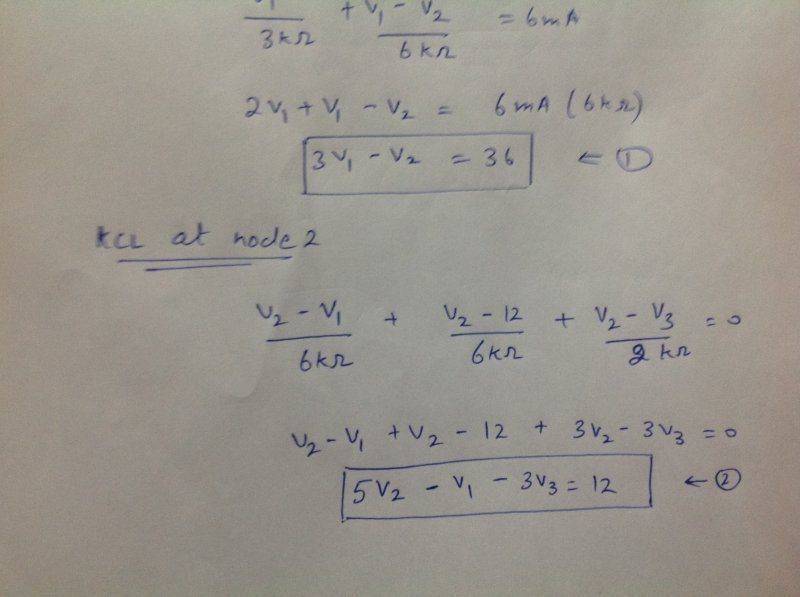 V₁/3kΩ + V₁ - V₂/6kΩ = 6mA
2V₁ + V₁ - V₂ = 6mA (6kΩ)
3V₁ - V₂ = 36 ← ①
KCL at node 2
V₂ - V₁/6kΩ + V₂ - 12/6kΩ + V₂ - V₃/2kΩ = 0
V₂ - V₁ + V₂ - 12 + 3V₂ - 3V₃ = 0
5V₂ - V₁ - 3V₃ = 12 ← ②